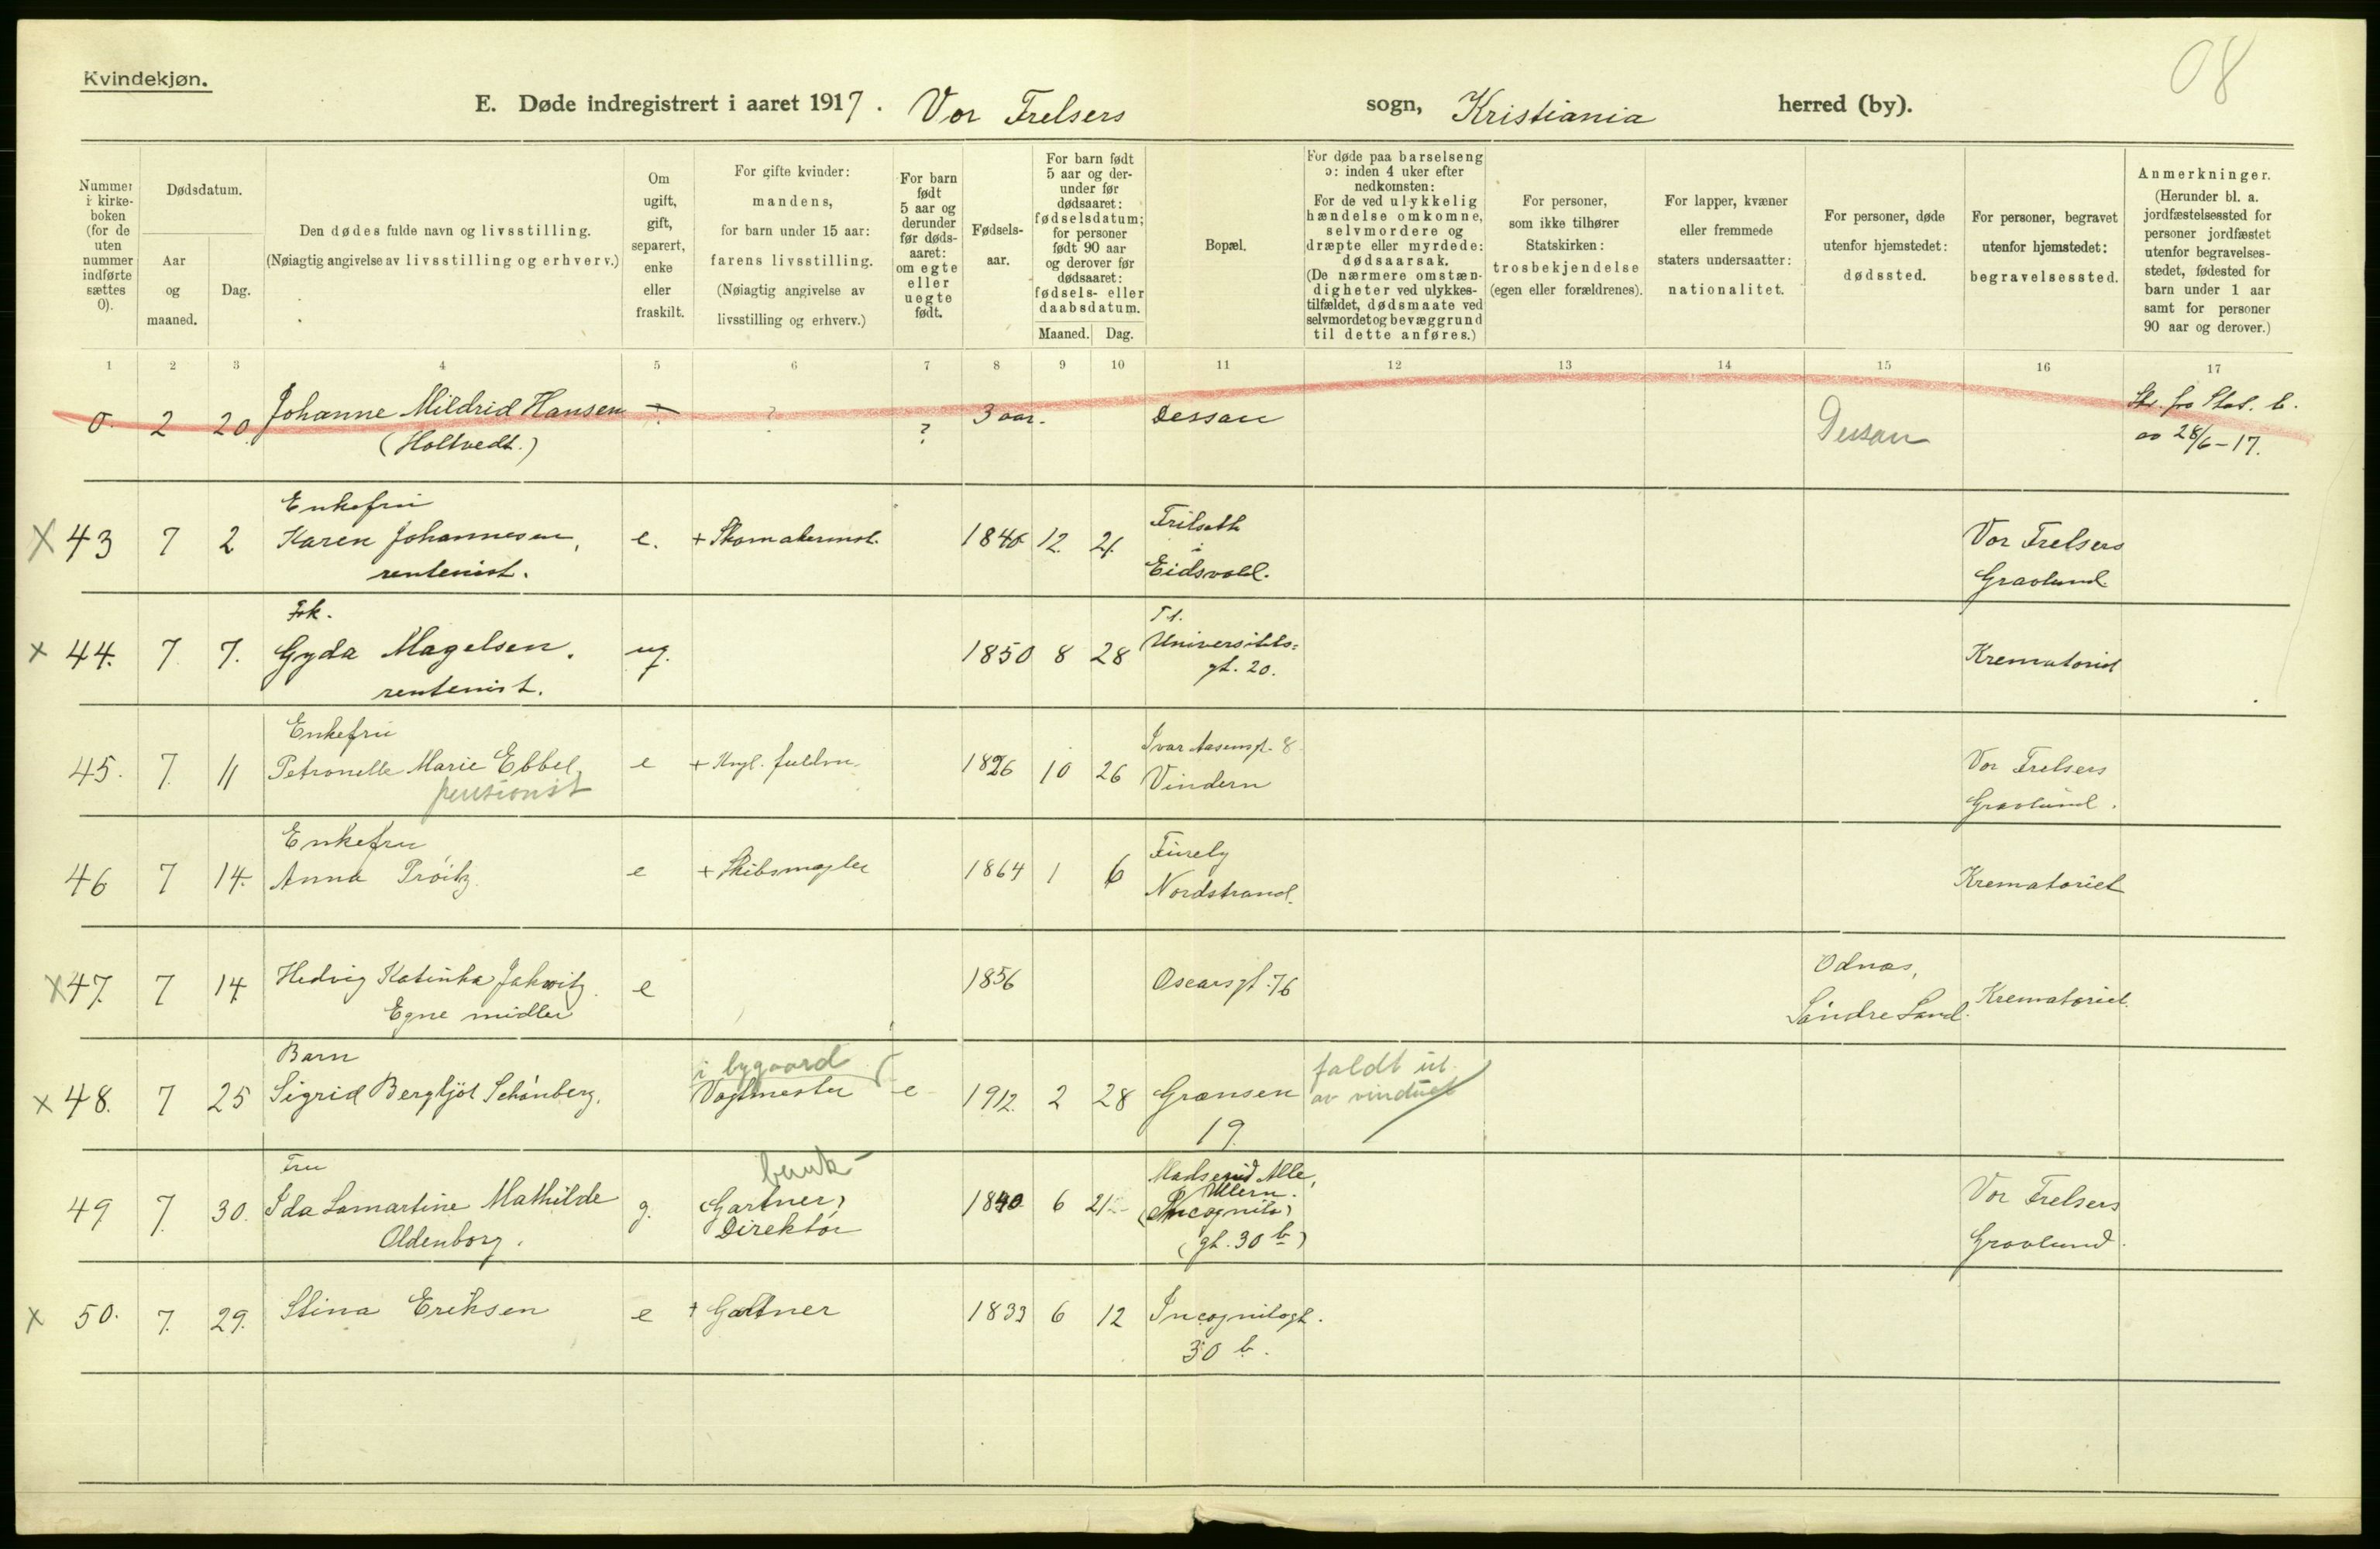 08
Kvindekjøn.
E. Døde indregistrert i aaret 1917. Vor Frelsers sogn, Kristiania herred (by).
Nummer i kirke-boken (for de uten nummer indførte sættes 0).
Dødsdatum.
Aar og maaned.
Dag.
Den dødes fulde navn og livsstilling.
(Nøiagtig angivelse av livsstilling og erhverv.)
Om ugift, gift, separert, enke eller fraskilt.
For gifte kvinder: mandens, for barn under 15 aar: farens livsstilling.
(Nøiagtig angivelse av livsstilling og erhverv.)
For barn født 5 aar og derunder før døds-aaret: om egte eller uegte født.
Fødsels-aar.
For barn født 5 aar og der-under før dødsaaret: fødselsdatum; for personer født 90 aar og derover før dødsaaret: fødsels- eller daabsdatum.
Maaned. Dag.
Bopæl.
For døde paa barselseng ɔ: inden 4 uker efter nedkomsten: For de ved ulykkelig hændelse omkomne, selvmordere og dræpte eller myrdede: dødsaarsak.
(De nærmere omstæn-digheter ved ulykkes-tilfældet, dødsmaate ved selvmordet og bevæggrund til dette anføres.)
For personer, som ikke tilhører Statskirken: trosbekjendelse (egen eller forældrenes).
For lapper, kvæner eller fremmede staters undersaatter: nationalitet.
For personer, døde utenfor hjemstedet: dødssted.
For personer, begravet utenfor hjemstedet: begravelsessted.
Anmerkninger.
(Herunder bl. a. jordfæstelsessted for personer jordfæstet utenfor begravelses-stedet, fødested for barn under 1 aar samt for personer 90 aar og derover.)
1 2 3 4 5 6 7 8 9 10 11 12 13 14 15 16 17
0. 2 20 Johanne Mildrid Hansen ? ? ? 3 aar. Dessau Dessau fra Stat. b.
(Holtvedt.) 28/6-17.
Enkefru
X 43 7 2 Karen Johannesen, e. + Skomakermst. 1846 12. 21. Frilseth i Eidsvold. Vor Frelsers Gravlund.
rentenist.
Frk.
x 44. 7. 7. Gyda Magelsen. ug. 1850 8 28 Universitets=gt. 20. Krematoriet
rentenist.
Enkefru
45. 7. 11 Petronelle Marie Ebbel, e + Kngl. fuldm. 1826 10 26 Ivar Aasensgt. 8 Vindern Vor Frelsers Gravlund.
pensionist
Enkefru
46 7 14. Anna Prøitz. e + Skibsmegler 1864 1 6 Furely Nordstrand. Krematoriet
X 47. 7 14 Hedvig Katinka Jakwitz. e 1856 Oscarsgt. 76 Odnæs, Søndre Land. Krematoriet.
Egne midler
Barn i bygaard
x 48. 7 25 Sigrid Bergljot Schønberg. Vagtmester e 1912. 2 28 Grænsen 19. faldt ut av vinduet
Fru bank-
49 7. 30. Ida Lamartine Mathilde g. (Gartner) Direktør 1840 6 21 Madserud Alle, Ullern. (Incognito) (gt. 30 b) Vor Frelsers Gravlund.
Oldenborg.
x 50. 7. 29. Stina Eriksen e + Gartner 1833 6 12 Incognitogt. 30 b.